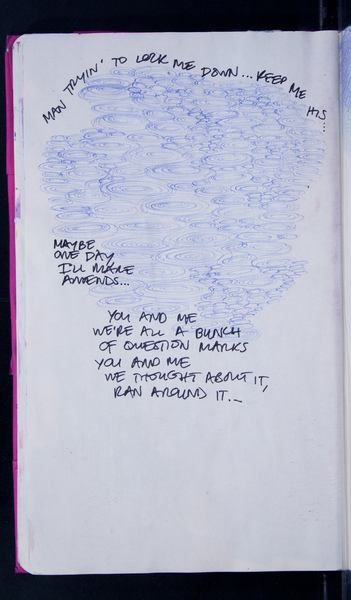 MAN TRYIN' TO LOCK ME DOWN... KEEP ME HIS...
MAYBE
ONE DAY
I'LL MAKE
AMENDS...
YOU AND ME
WE'RE ALL A BUNCH
OF QUESTION MARKS
YOU AND ME
WE THOUGHT ABOUT IT,
RAN AROUND IT._